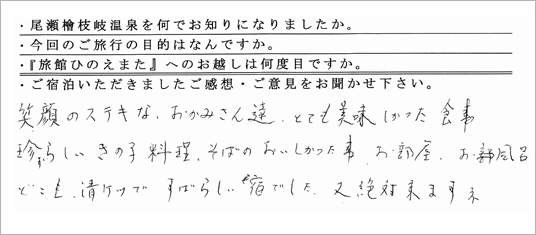 ・尾瀬檜枝岐温泉を何でお知りになりましたか。
・今回のご旅行の目的はなんですか。
・『旅館ひのえまた』へのお越しは何度目ですか。
・ご宿泊いただきましたご感想・ご意見をお聞かせ下さい。
笑顔のステキな、おかみさん達、とても美味しかった食事
珍らしいきの子料理、そばのおいしかった事、お部屋、お風呂
どこも、清ケツですばらしい宿でした、又絶対来ますネ